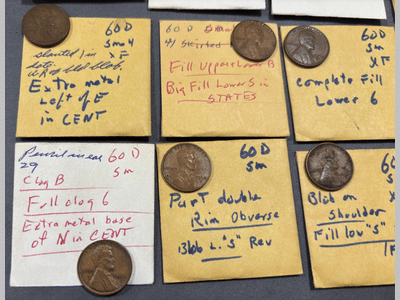 60 D
Sm 4
slanted 1 in XF
date
Extra metal
Left of E
in CENT
60 D
w/ Skirted
Fill Upper Lower B
Big Fill Lower S in
STATES
60D
Sm
XF
Complete Fill
Lower 6
Pencil in ear 60 D
29 Sm
Clog B
Full clog 6
Extra metal base
of N in CENT
60 D
Sm
Part double
Rim Obverse
Blob L. "S" Rev
60 D
Sm
Blob on
Shoulder
Fill low "S"